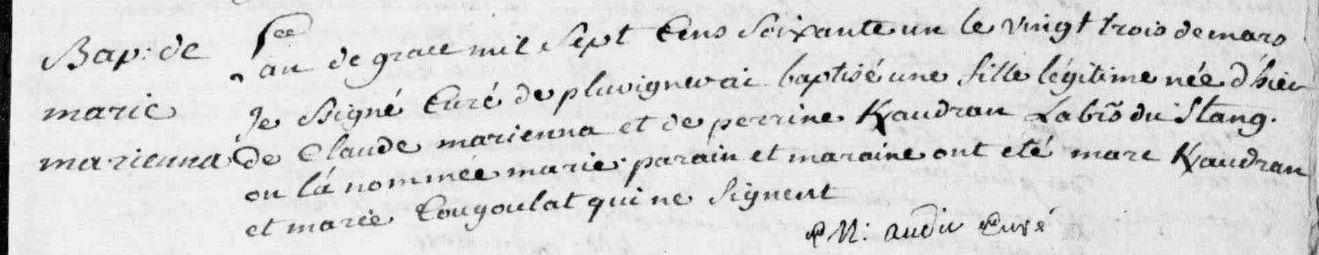 Bap: de
marie
marienna
L'an de grace mil Sept Cens Soixante un le vingt trois de mars
Je Signé Curé de pluvigner ai baptisé une fille légitime née d'hier
de Claude marienna et de perrine Kaudran du Stang.
on l'a nommée marie. parain et maraine ont été marc Kaudran
et marie Cougoulat qui ne Signent
audic Curé